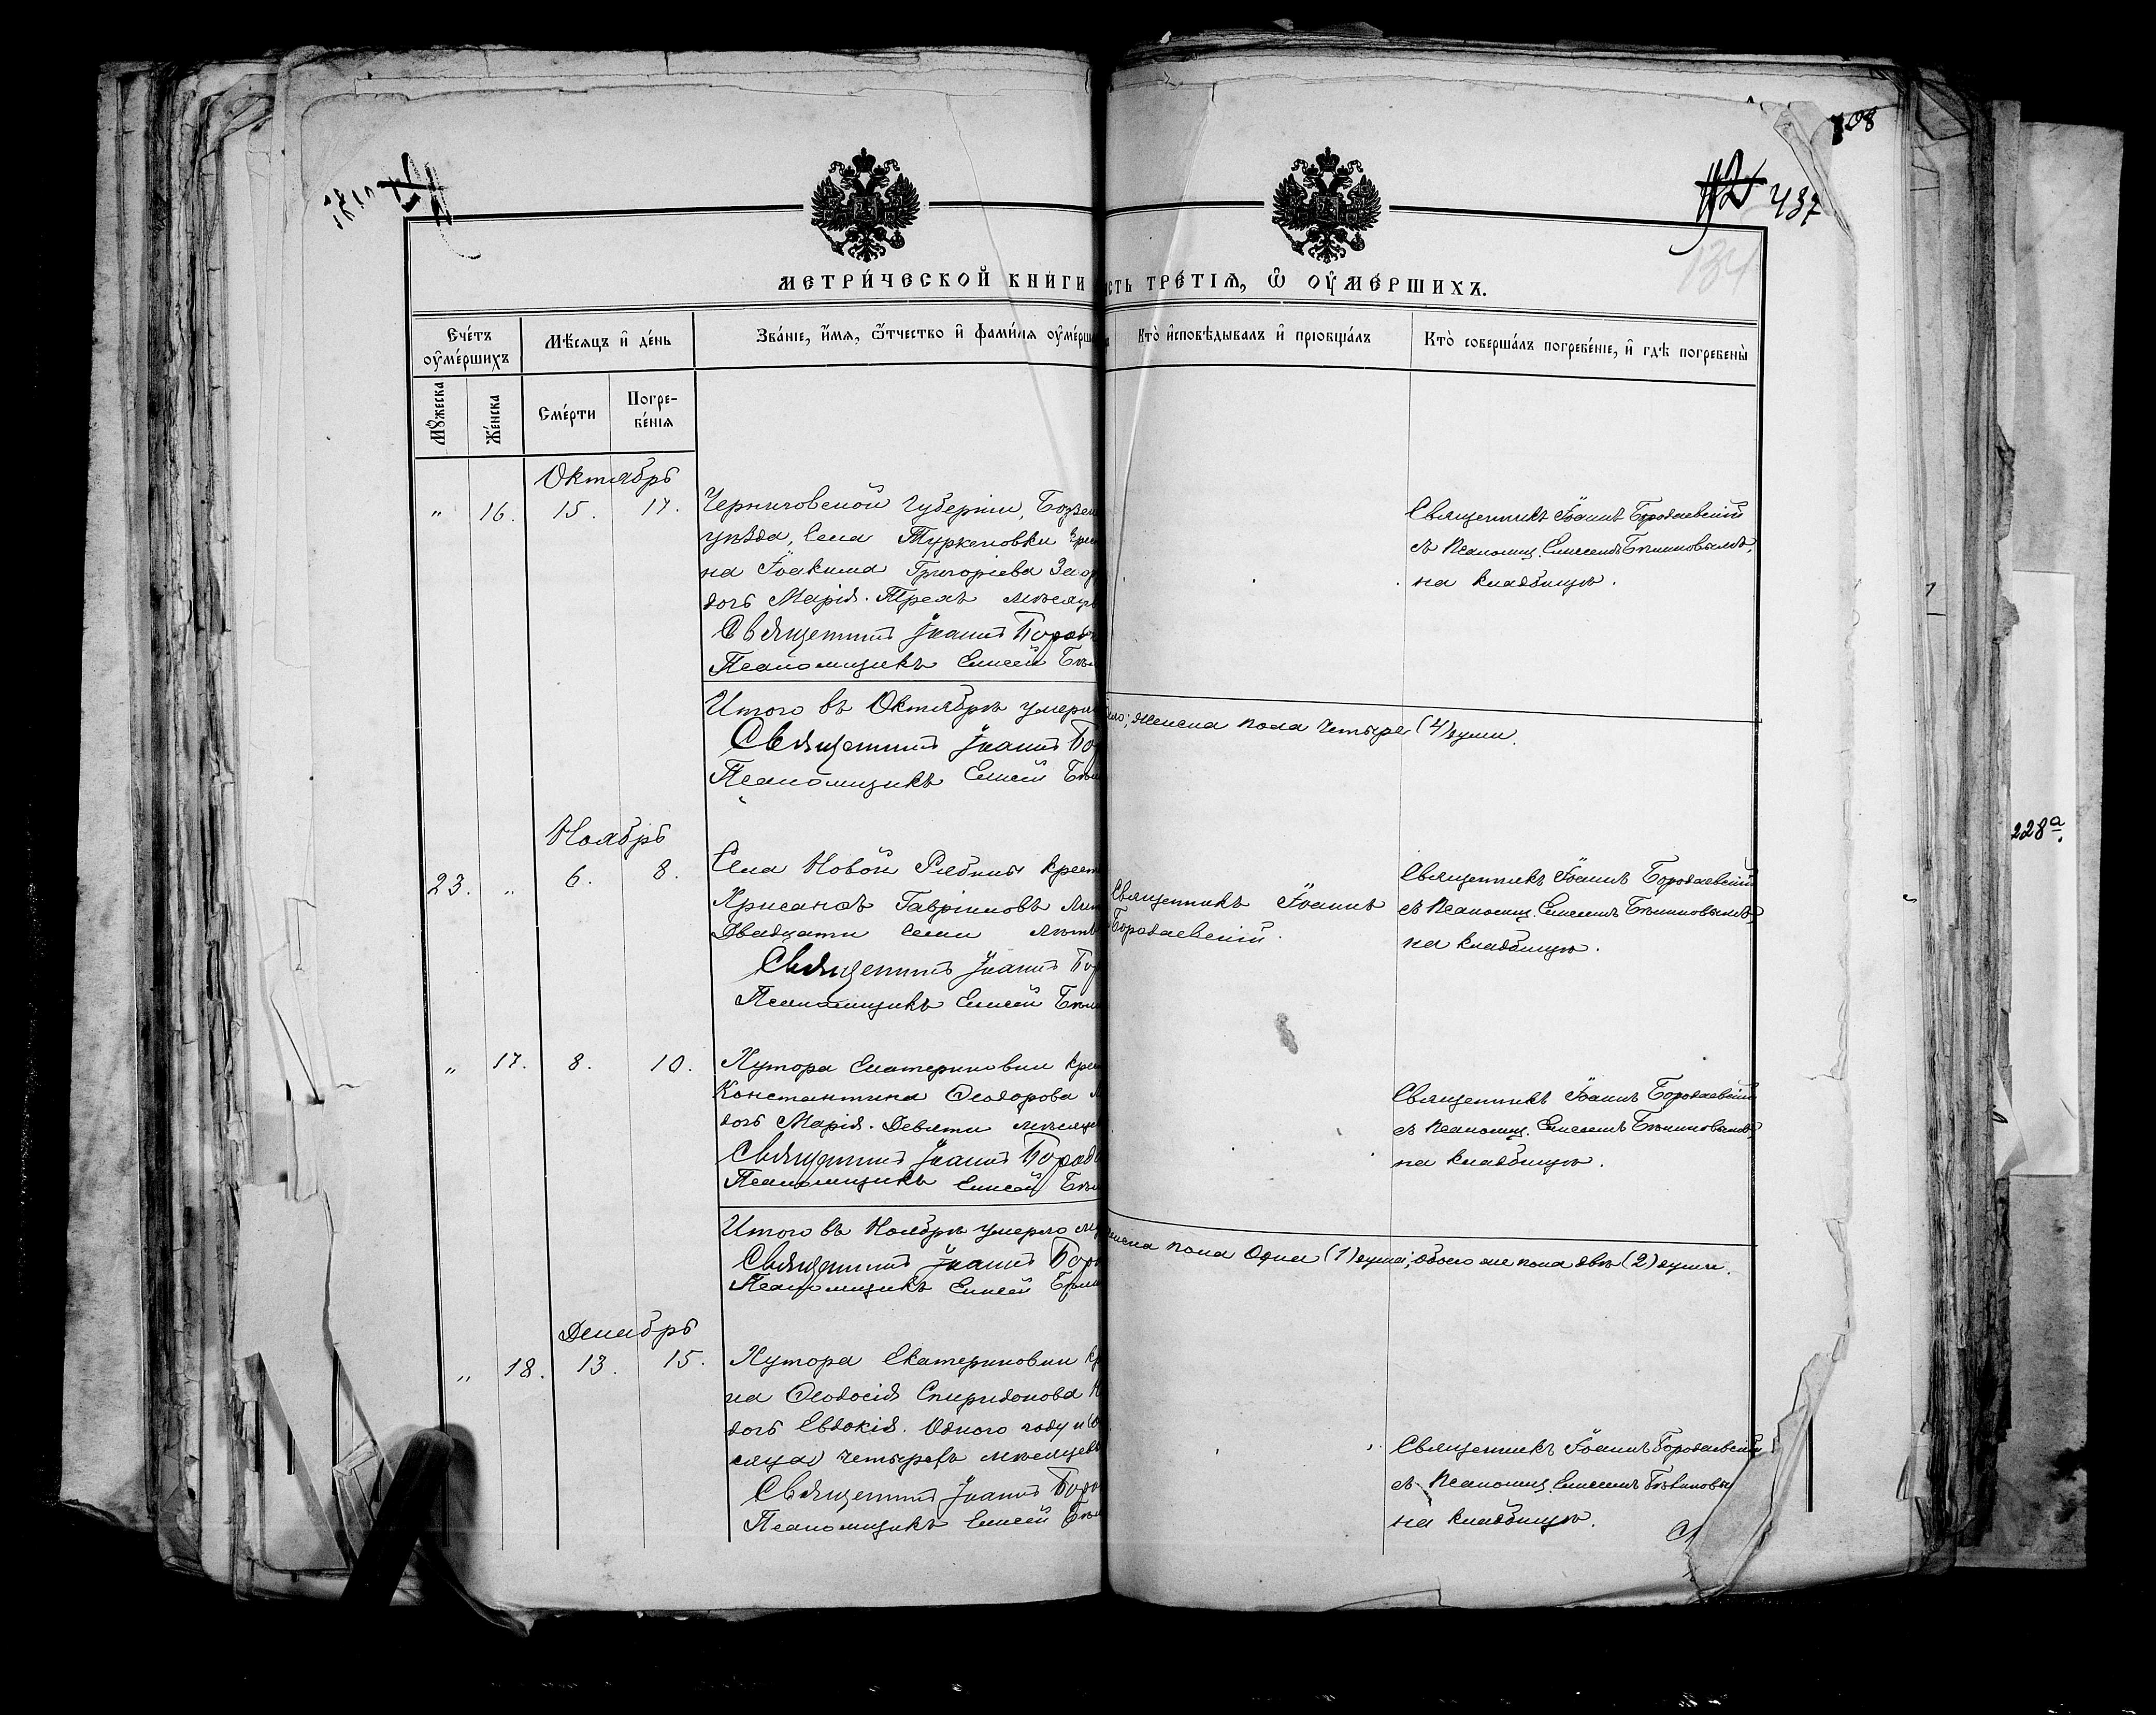 108
437
134
МЕТРИ́ЧЕСКОЙ КНИГИ
СТЬ ТРЕ́ТІѦ, Ѽ ОУ҆МЕ́РШИХЪ.
Сче́тъ оу҆ме́ршихъ
Мѣ́сяцъ и҆ де́нь
Зва́ніе, и҆́мя, ѻ҆́тчество и҆ фами́лія оу҆ме́рша
Кто̀ и҆сповѣ́дывалъ и҆ пріобща́лъ
Кто̀ соверша́лъ погребе́ніе, и҆ гдѣ̀ погребены̀
Мꙋ́жеска
Же́нска
Сме́рти
Погре-
бе́нія
Октябрь
" 16. 15. 17. Черниговской губерніи,
уѣзда, Села Туркеновки
на Іоакима Григоріева
дочь Марія. Трехъ мѣсяц
Священникъ Іоаннъ Бород
Псаломщикъ Елисей
Священникъ Іоаннъ Бородаевскій
съ Псаломщ. Елисеемъ
на кладбищѣ.
Итого въ Октябрѣ умерл
женска пола четыре (4) души.
Священникъ Іоаннъ Бо
Псаломщикъ Елисей
Ноябрь
23. " 6. 8. Села Новой Рябины крест
Хрисанѳъ Гавріиловъ
Двадцати семи лѣтъ
Священникъ Іоаннъ Бор
Псаломщикъ Елисей
Священникъ Іоаннъ
Бородаевскій.
Священникъ Іоаннъ Бородаевскій
съ Псаломщ. Елисеемъ
на кладбищѣ.
" 17. 8. 10. Хутора Екатериновки кре
Константина Ѳеодорова
дочь Марія. Девяти мѣсяце
Священникъ Іоаннъ Бород
Псаломщикъ Елисей
Священникъ Іоаннъ Бородаевскій
съ Псаломщ. Елисеемъ
на кладбищѣ.
Итого въ Ноябрѣ умерло му
женска пола одна (1) душа; обоего же пола двѣ (2) души.
Священникъ Іоаннъ Бор
Псаломщикъ Елисей
Декабрь
" 18. 13. 15. Хутора Екатериновки кр
на Ѳеодосія Спиридонова
дочь Евдокія. Одного году и
сяца) четырехъ мѣсяцевъ
Священникъ Іоаннъ Боро
Псаломщикъ Елисей
Священникъ Іоаннъ Бородаевскій
съ Псаломщ. Елисеемъ
на кладбищѣ.
228а.